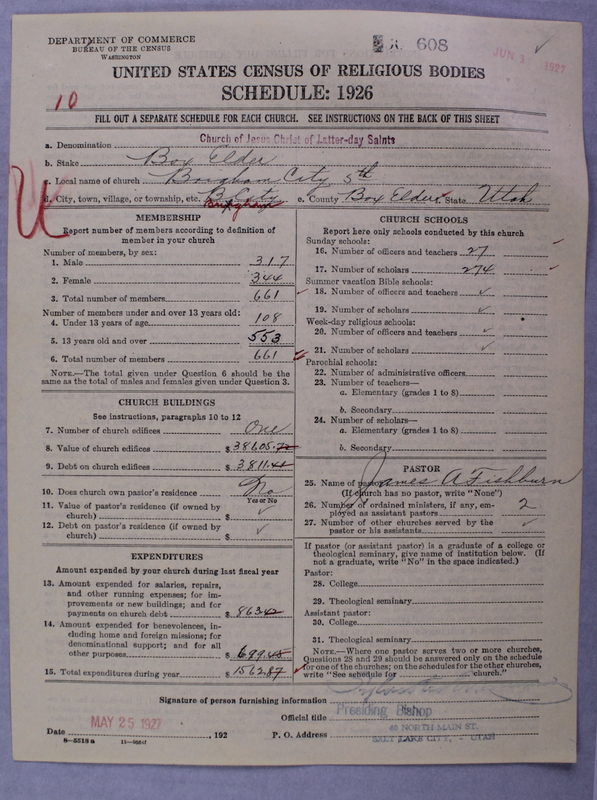 DEPARTMENT OF COMMERCE
BUREAU OF THE CENSUS
WASHINGTON
608
JUN 1 1927
UNITED STATES CENSUS OF RELIGIOUS BODIES
SCHEDULE: 1926
10
FILL OUT A SEPARATE SCHEDULE FOR EACH CHURCH. SEE INSTRUCTIONS ON THE BACK OF THIS SHEET
a. Denomination Church of Jesus Christ of Latter-day Saints
b. Stake Box Elder
c. Local name of church Brigham City 5th
d. City, town, village, or township, etc. B. City Brigham e. County Box Elder State Utah
MEMBERSHIP
Report number of members according to definition of
member in your church
Number of members, by sex:
1. Male 317
2. Female 344
3. Total number of members 661
Number of members under and over 13 years old:
4. Under 13 years of age 108
5. 13 years old and over 553
6. Total number of members 661
NOTE.—The total given under Question 6 should be the
same as the total of males and females given under Question 3.
CHURCH BUILDINGS
See instructions, paragraphs 10 to 12
7. Number of church edifices One
8. Value of church edifices $ 38605.
9. Debt on church edifices $ 3811.
10. Does church own pastor's residence No
Yes or No
11. Value of pastor's residence (if owned by
church) $
12. Debt on pastor's residence (if owned by
church) $
EXPENDITURES
Amount expended by your church during last fiscal year
13. Amount expended for salaries, repairs,
and other running expenses; for im-
provements or new buildings; and for
payments on church debt $ 863.42
14. Amount expended for benevolences, in-
cluding home and foreign missions; for
denominational support; and for all
other purposes $ 699.45
15. Total expenditures during year $ 1562.87
CHURCH SCHOOLS
Report here only schools conducted by this church
Sunday schools:
16. Number of officers and teachers 27
17. Number of scholars 274
Summer vacation Bible schools:
18. Number of officers and teachers
19. Number of scholars
Week-day religious schools:
20. Number of officers and teachers
21. Number of scholars
Parochial schools:
22. Number of administrative officers
23. Number of teachers—
a. Elementary (grades 1 to 8)
b. Secondary
24. Number of scholars—
a. Elementary (grades 1 to 8)
b. Secondary
PASTOR
25. Name of pastor James A Fishburn
(If church has no pastor, write "None")
26. Number of ordained ministers, if any, em-
ployed as assistant pastors 2
27. Number of other churches served by the
pastor or his assistants
If pastor (or assistant pastor) is a graduate of a college or
theological seminary, give name of institution below. (If
not a graduate, write "No" in the space indicated.)
Pastor:
28. College
29. Theological seminary
Assistant pastor:
30. College
31. Theological seminary
NOTE.—Where one pastor serves two or more churches,
Questions 28 and 29 should be answered only on the schedule
for one of the churches; on the schedules for the other churches,
write "See schedule for church."
Signature of person furnishing information
MAY 25 1927
Official title Presiding Bishop
Date , 192 P. O. Address 40 NORTH MAIN ST.
SALT LAKE CITY, - UTAH
8—5518 a